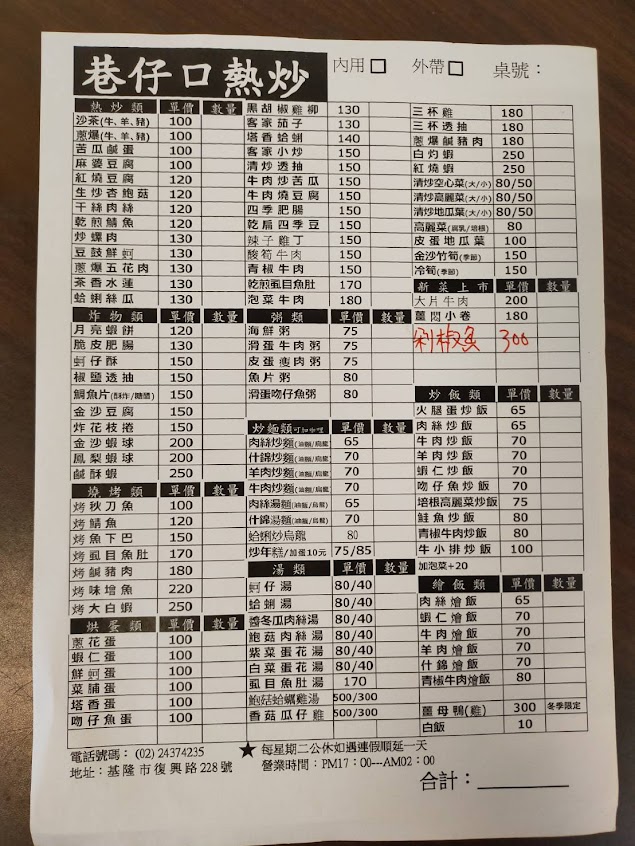 巷仔口熱炒 內用□ 外帶□ 桌號：
熱炒類 單價 數量
沙茶(牛、羊、豬) 100
蔥爆(牛、羊、豬) 100
苦瓜鹹蛋 100
麻婆豆腐 100
紅燒豆腐 120
生炒杏鮑菇 120
干絲肉絲 120
乾煎鯖魚 120
炒螺肉 130
豆鼓鮮蚵 130
蔥爆五花肉 130
茶香水蓮 130
蛤蜊絲瓜 130
炸物類 單價 數量
月亮蝦餅 120
脆皮肥腸 130
蚵仔酥 150
椒鹽透抽 150
鯛魚片(酥炸/糖醋) 150
金沙豆腐 150
炸花枝捲 150
金沙蝦球 200
鳳梨蝦球 200
鹹酥蝦 250
燒烤類 單價 數量
烤秋刀魚 100
烤鯖魚 120
烤魚下巴 150
烤虱目魚肚 170
烤鹹豬肉 180
烤味增魚 220
烤大白蝦 250
烘蛋類 單價 數量
蔥花蛋 100
蝦仁蛋 100
鮮蚵蛋 100
菜脯蛋 100
塔香蛋 100
吻仔魚蛋 100
黑胡椒雞柳 130
客家茄子 130
塔香蛤蜊 140
客家小炒 150
清炒透抽 150
牛肉炒苦瓜 150
牛肉燒豆腐 150
四季肥腸 150
乾扁四季豆 150
辣子雞丁 150
酸筍牛肉 150
青椒牛肉 150
乾煎虱目魚肚 170
泡菜牛肉 180
粥類 單價 數量
海鮮粥 75
滑蛋牛肉粥 75
皮蛋瘦肉粥 75
魚片粥 80
滑蛋吻仔魚粥 80
炒麵類可加咖哩 單價 數量
肉絲炒麵(油麵/烏龍) 65
什錦炒麵(油麵/烏龍) 70
羊肉炒麵(油麵/烏龍) 70
牛肉炒麵(油麵/烏龍) 70
肉絲湯麵(油麵/烏龍) 65
什錦湯麵(油麵/烏龍) 70
蛤蜊炒烏龍 80
炒年糕/加蛋10元 75/85
湯類 單價 數量
蚵仔湯 80/40
蛤蜊湯 80/40
醬冬瓜肉絲湯 80/40
鮑菇肉絲湯 80/40
紫菜蛋花湯 80/40
白菜蛋花湯 80/40
虱目魚肚湯 170
鮑菇蛤蠣雞湯 500/300
香菇瓜仔雞 500/300
三杯雞 180
三杯透抽 180
蔥爆鹹豬肉 180
白灼蝦 250
紅燒蝦 250
清炒空心菜(大/小) 80/50
清炒高麗菜(大/小) 80/50
清炒地瓜葉(大/小) 80/50
高麗菜(腐乳/培根) 80
皮蛋地瓜葉 100
金沙竹筍(季節) 150
冷筍(季節) 150
新菜上市 單價 數量
大片牛肉 200
薑悶小卷 180
剁椒魚 300
炒飯類 單價 數量
火腿蛋炒飯 65
肉絲炒飯 65
牛肉炒飯 70
羊肉炒飯 70
蝦仁炒飯 70
吻仔魚炒飯 70
培根高麗菜炒飯 75
鮭魚炒飯 80
青椒牛肉炒飯 80
牛小排炒飯 100
加泡菜+20
燴飯類 單價 數量
肉絲燴飯 65
蝦仁燴飯 70
牛肉燴飯 70
羊肉燴飯 70
什錦燴飯 70
青椒牛肉燴飯 80
薑母鴨(雞) 300 冬季限定
白飯 10
電話號碼：(02) 24374235
地址：基隆市復興路228號
★ 每星期二公休如遇連假順延一天
營業時間：PM17：00---AM02：00
合計：